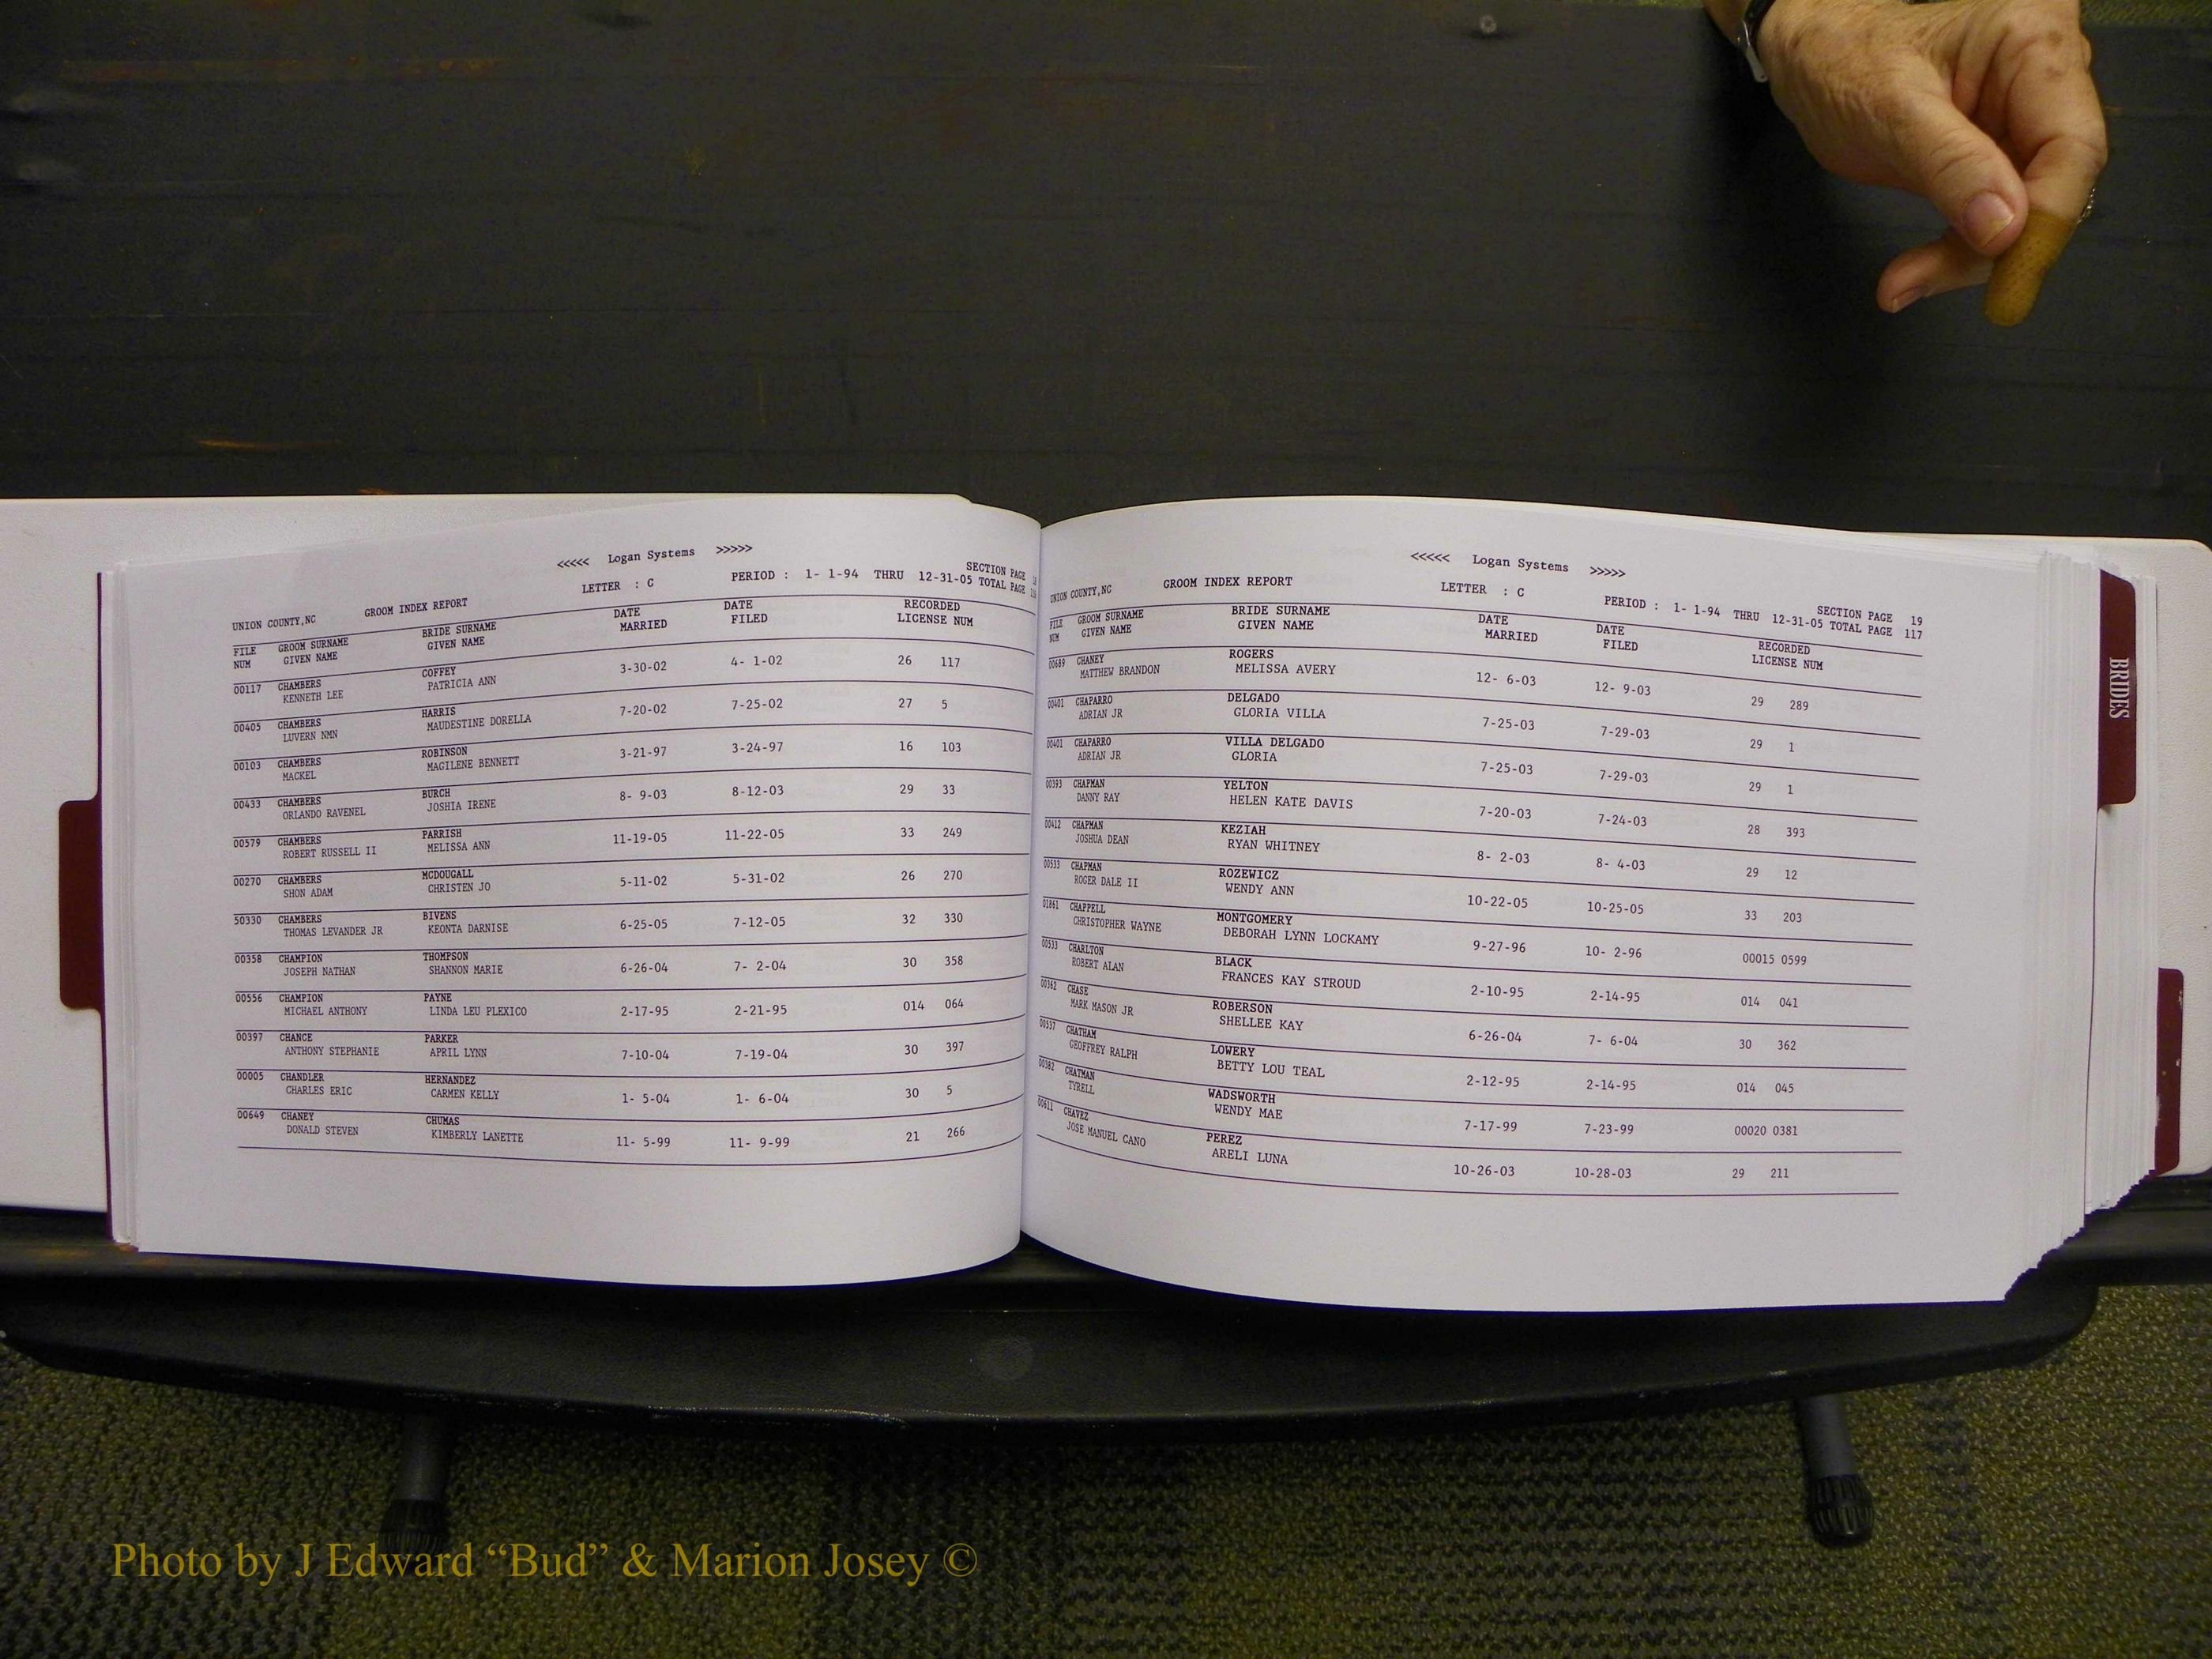 <<<<< Logan Systems >>>>>
UNION COUNTY,NC GROOM INDEX REPORT LETTER : C PERIOD : 1- 1-94 THRU 12-31-05
SECTION PAGE
TOTAL PAGE
FILE GROOM SURNAME BRIDE SURNAME DATE DATE RECORDED
NUM GIVEN NAME GIVEN NAME MARRIED FILED LICENSE NUM
00117 CHAMBERS COFFEY 3-30-02 4- 1-02 26 117
KENNETH LEE PATRICIA ANN
00405 CHAMBERS HARRIS 7-20-02 7-25-02 27 5
LUVERN NMN MAUDESTINE DORELLA
00103 CHAMBERS ROBINSON 3-21-97 3-24-97 16 103
MACKEL MAGILENE BENNETT
00433 CHAMBERS BURCH 8- 9-03 8-12-03 29 33
ORLANDO RAVENEL JOSHIA IRENE
00579 CHAMBERS PARRISH 11-19-05 11-22-05 33 249
ROBERT RUSSELL II MELISSA ANN
00270 CHAMBERS MCDOUGALL 5-11-02 5-31-02 26 270
SHON ADAM CHRISTEN JO
50330 CHAMBERS BIVENS 6-25-05 7-12-05 32 330
THOMAS LEVANDER JR KEONTA DARNISE
00358 CHAMPION THOMPSON 6-26-04 7- 2-04 30 358
JOSEPH NATHAN SHANNON MARIE
00556 CHAMPION PAYNE 2-17-95 2-21-95 014 064
MICHAEL ANTHONY LINDA LEU PLEXICO
00397 CHANCE PARKER 7-10-04 7-19-04 30 397
ANTHONY STEPHANIE APRIL LYNN
00005 CHANDLER HERNANDEZ 1- 5-04 1- 6-04 30 5
CHARLES ERIC CARMEN KELLY
00649 CHANEY CHUMAS 11- 5-99 11- 9-99 21 266
DONALD STEVEN KIMBERLY LANETTE
<<<<< Logan Systems >>>>>
UNION COUNTY,NC GROOM INDEX REPORT LETTER : C PERIOD : 1- 1-94 THRU 12-31-05
SECTION PAGE 19
TOTAL PAGE 117
FILE GROOM SURNAME BRIDE SURNAME DATE DATE RECORDED
NUM GIVEN NAME GIVEN NAME MARRIED FILED LICENSE NUM
00689 CHANEY ROGERS 12- 6-03 12- 9-03 29 289
MATTHEW BRANDON MELISSA AVERY
00401 CHAPARRO DELGADO 7-25-03 7-29-03 29 1
ADRIAN JR GLORIA VILLA
00401 CHAPARRO VILLA DELGADO 7-25-03 7-29-03 29 1
ADRIAN JR GLORIA
00393 CHAPMAN YELTON 7-20-03 7-24-03 28 393
DANNY RAY HELEN KATE DAVIS
00412 CHAPMAN KEZIAH 8- 2-03 8- 4-03 29 12
JOSHUA DEAN RYAN WHITNEY
00533 CHAPMAN ROZEWICZ 10-22-05 10-25-05 33 203
ROGER DALE II WENDY ANN
01861 CHAPPELL MONTGOMERY 9-27-96 10- 2-96 00015 0599
CHRISTOPHER WAYNE DEBORAH LYNN LOCKAMY
00533 CHARLTON BLACK 2-10-95 2-14-95 014 041
ROBERT ALAN FRANCES KAY STROUD
00362 CHASE ROBERSON 6-26-04 7- 6-04 30 362
MARK MASON JR SHELLEE KAY
00537 CHATHAM LOWERY 2-12-95 2-14-95 014 045
GEOFFREY RALPH BETTY LOU TEAL
00382 CHATMAN WADSWORTH 7-17-99 7-23-99 00020 0381
TYRELL WENDY MAE
00611 CHAVEZ PEREZ 10-26-03 10-28-03 29 211
JOSE MANUEL CANO ARELI LUNA
BRIDES
Photo by J Edward “Bud” & Marion Josey ©